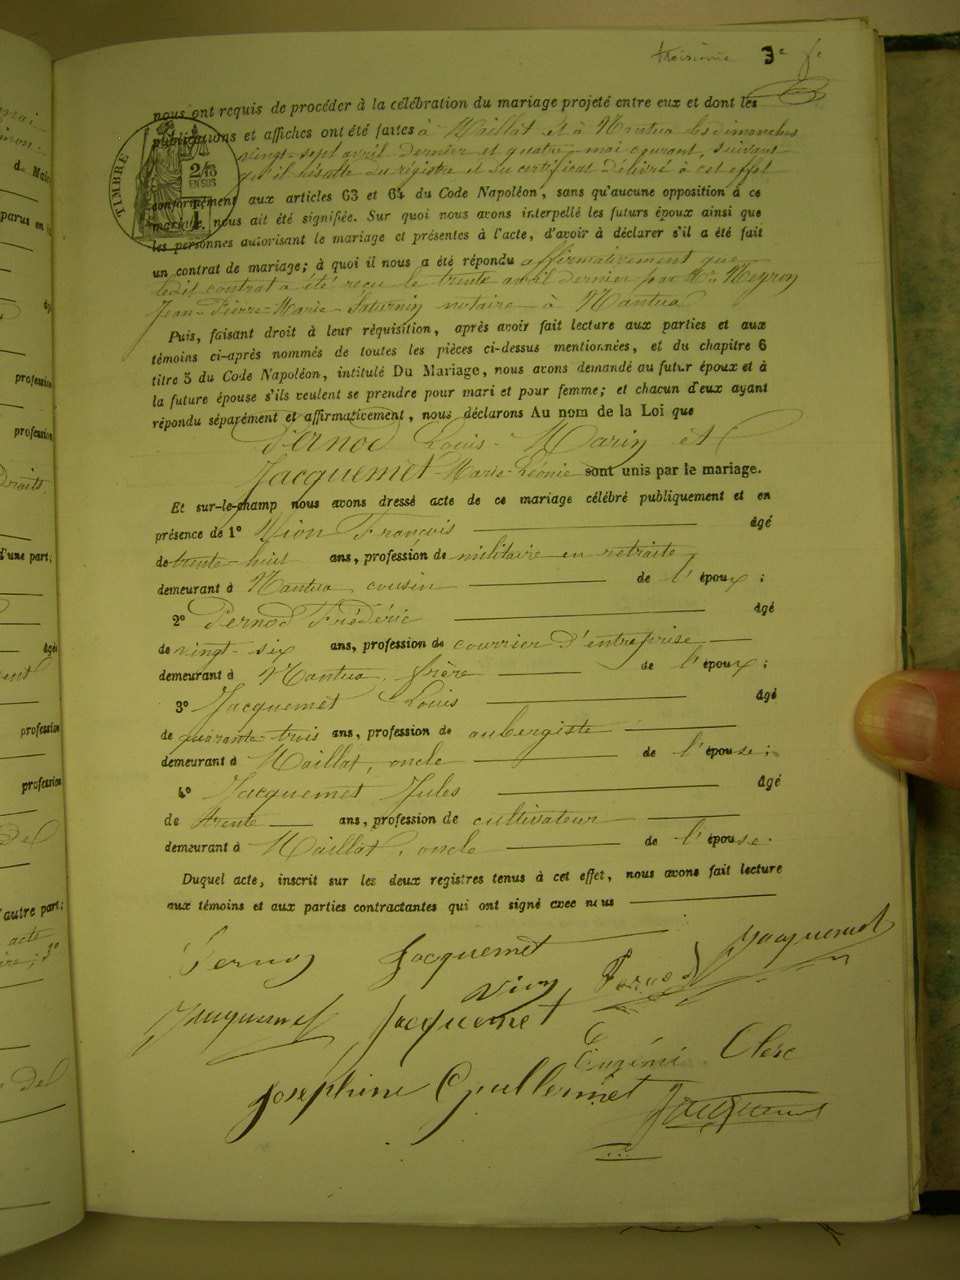 troisième 3e
nous ont requis de procéder à la célébration du mariage projeté entre eux et dont les
publications et affiches ont été faites à Maillat et à Nantua les dimanches
vingt-sept avril dernier et quatre mai courant, suivant
qu'il résulte du registre et du certificat délivré à cet effet
conformément aux articles 63 et 64 du Code Napoléon, sans qu'aucune opposition à ce
mariage nous ait été signifiée. Sur quoi nous avons interpellé les futurs époux ainsi que
les personnes autorisant le mariage et présentes à l'acte, d'avoir à déclarer s'il a été fait
un contrat de mariage; à quoi il nous a été répondu affirmativement que
ledit contrat a été reçu le trente avril dernier par Me Meyron
Jean-Pierre-Marie-Saturnin notaire à Nantua
Puis, faisant droit à leur réquisition, après avoir fait lecture aux parties et aux
témoins ci-après nommés de toutes les pièces ci-dessus mentionnées, et du chapitre 6
titre 5 du Code Napoléon, intitulé Du Mariage, nous avons demandé au futur époux et à
la future épouse s'ils veulent se prendre pour mari et pour femme; et chacun d'eux ayant
répondu séparément et affirmativement, nous déclarons Au nom de la Loi que
Pernod Louis-Marin et
Jacquemet Marie-Léonie sont unis par le mariage.
Et sur-le-champ nous avons dressé acte de ce mariage célébré publiquement et en
présence de 1° Vion François âgé
de trente-huit ans, profession de militaire en retraite,
demeurant à Nantua, cousin de l'époux;
2° Pernod Frédéric âgé
de vingt-six ans, profession de courrier d'entreprise
demeurant à Nantua, frère de l'époux;
3° Jacquemet Louis âgé
de quarante-trois ans, profession de aubergiste
demeurant à Maillat, oncle de l'épouse;
4° Jacquemet Jules âgé
de trente ans, profession de cultivateur
demeurant à Maillat, oncle de l'épouse.
Duquel acte, inscrit sur les deux registres tenus à cet effet, nous avons fait lecture
aux témoins et aux parties contractantes qui ont signé avec nous
Pernod Jacquemet Jacquemet
Vion Pernod
Jacquemet Jacquemet
Eugénie Clerc
Josephine Guillermet Jacquemet
TIMBRE
2/10
EN SUS